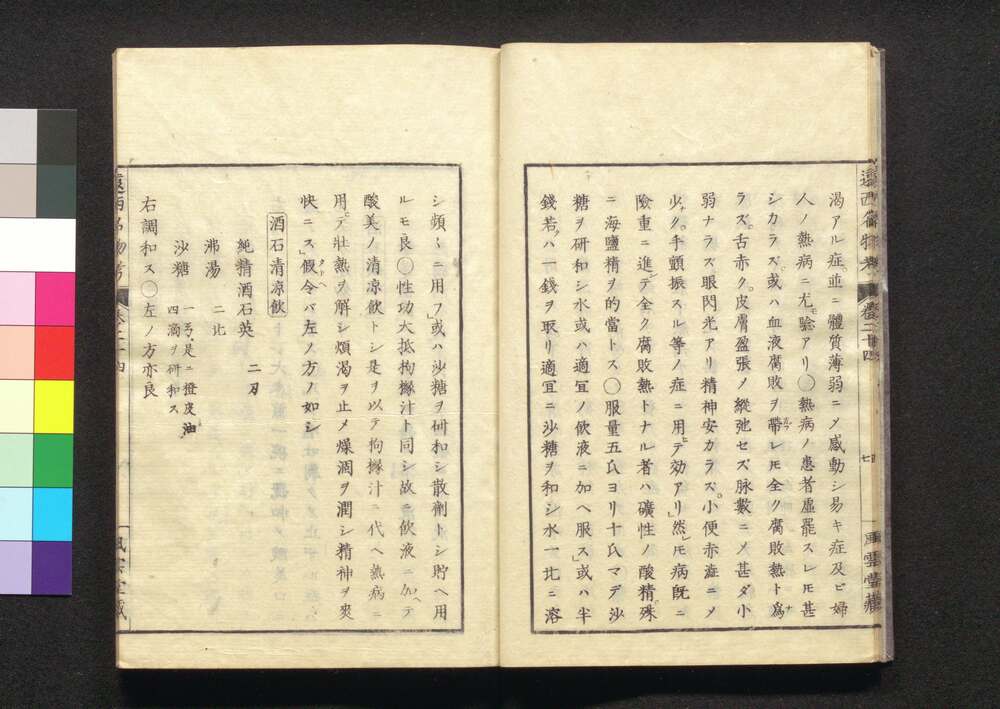 渇アル症。並ニ體質薄弱ニメ感動シ易キ症及ビ婦
人ノ熱病ニ尤モ驗アリ◯熱病ノ患者虚罷スレ𪜈甚
シカラズ。或ハ血液腐敗ヲ帶レ𪜈全ク腐敗熱ト爲
ラズ。舌赤ク。皮膚盈張ノ縱弛セズ脉數ニメ甚ダ小
弱ナラズ眼閃光アリ精神安カラズ。小便赤澁ニメ
少ク。手顫振スル等ノ症ニ用テ効アリ」然レ𪜈病既ニ
險重ニ進テ全ク腐敗熱トナル者ハ礦性ノ酸精殊
ニ海鹽精ヲ的當トス◯服量五氏ヨリ十氏マデ沙
糖ヲ研和シ水或ハ適冝ノ飲液ニ加ヘ服ス」或ハ半
錢若ハ一錢ヲ取リ適冝ニ沙糖ヲ和シ水一㔫ニ溶
遠西名物考 卷二十四 風雲堂藏
シ頻々ニ用フ」或ハ沙糖ヲ研和シ散劑トシ貯ヘ用
ルモ良◯性功大抵拘櫞汁ト同シ故ニ飲液ニ加ヘテ
酸美ノ清凉飲トシ是ヲ以テ拘櫞汁ニ代ヘ熱病ニ
用テ壯熱ヲ解シ煩渇ヲ止メ燥涸ヲ潤シ精神ヲ爽
快ニス」假令バ左ノ方ノ如シ
酒石清凉飲
純精酒石英 二刃
沸湯 二㔫
沙糖 一弓、是ニ橙皮油
四滴ヲ研和ス
右調和ス◯左ノ方亦良